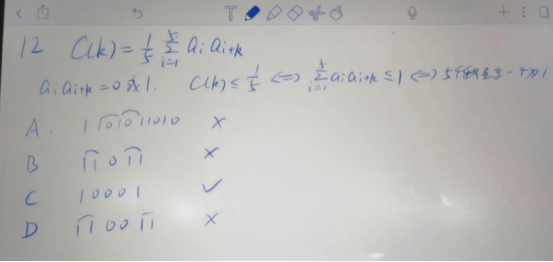 12 C(k) = 1/5 Σ_{i=1}^{5} a_i a_{i+k}
a_i a_{i+k} = 0 或 1. C(k) ≤ 1/5 ⟺ Σ_{i=1}^{5} a_i a_{i+k} ≤ 1 ⟺ 5个 至多一个为1
A. 1101011010 ×
B 11011 ×
C 10001 ✓
D 110011 ×